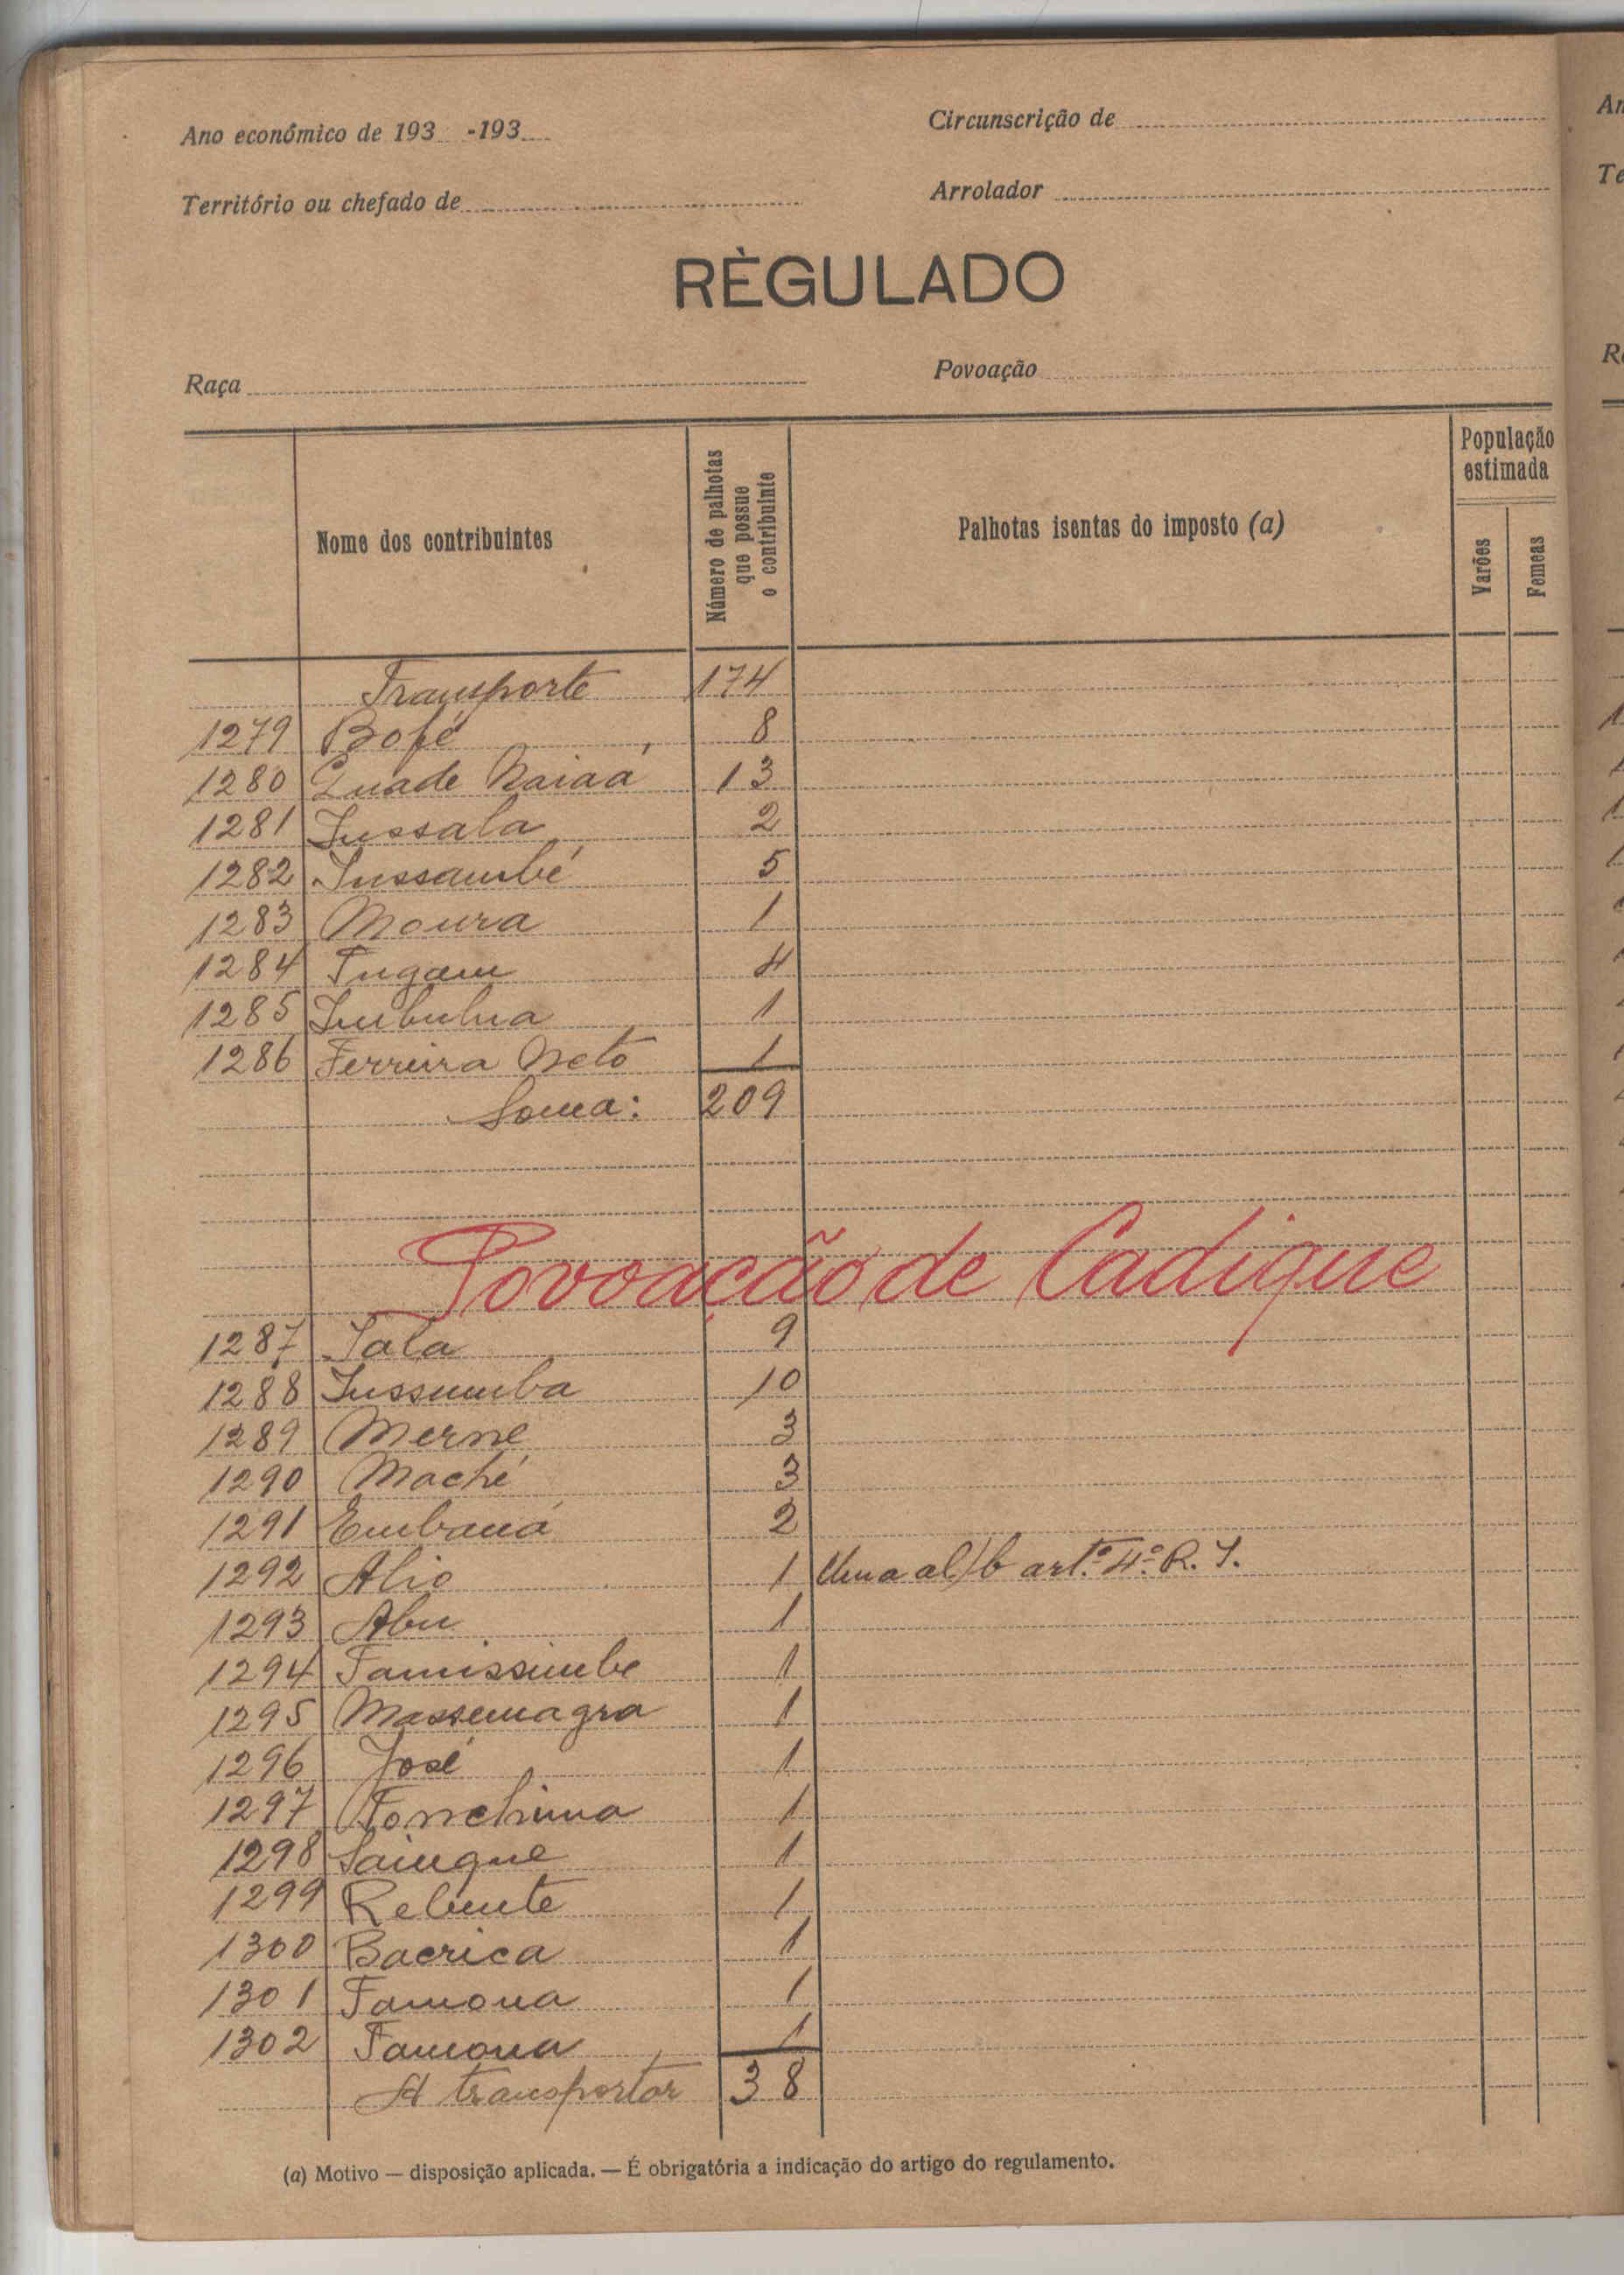 Ano económico de 193 -193
Circunscrição de
Território ou chefado de
Arrolador
RÈGULADO
Raça
Povoação
Nome dos contribuintes
Número de palhotas que possue o contribuinte
Palhotas isentas do imposto (a)
População estimada
Varões
Femeas
Transporte 174
1279 Bofé 8
1280 Quade Naiaá 13
1281 Jussala 2
1282 Jussambé 5
1283 Moura 1
1284 Tugam 4
1285 1
1286 Ferreira Neto 1
Soma: 209
Povoação de Cadique
1287 Tala 9
1288 Jussumba 10
1289 Merne 3
1290 Maché 3
1291 Embaná 2
1292 Alio 1 Uma al) b art.º 4.º R. I.
1293 Abu 1
1294 Famissimbe 1
1295 Massemagra 1
1296 José 1
1297 Fonchima 1
1298 Saingue 1
1299 1
1300 Bacrica 1
1301 Famona 1
1302 Famona 1
A transportar 38
(a) Motivo — disposição aplicada. — É obrigatória a indicação do artigo do regulamento.